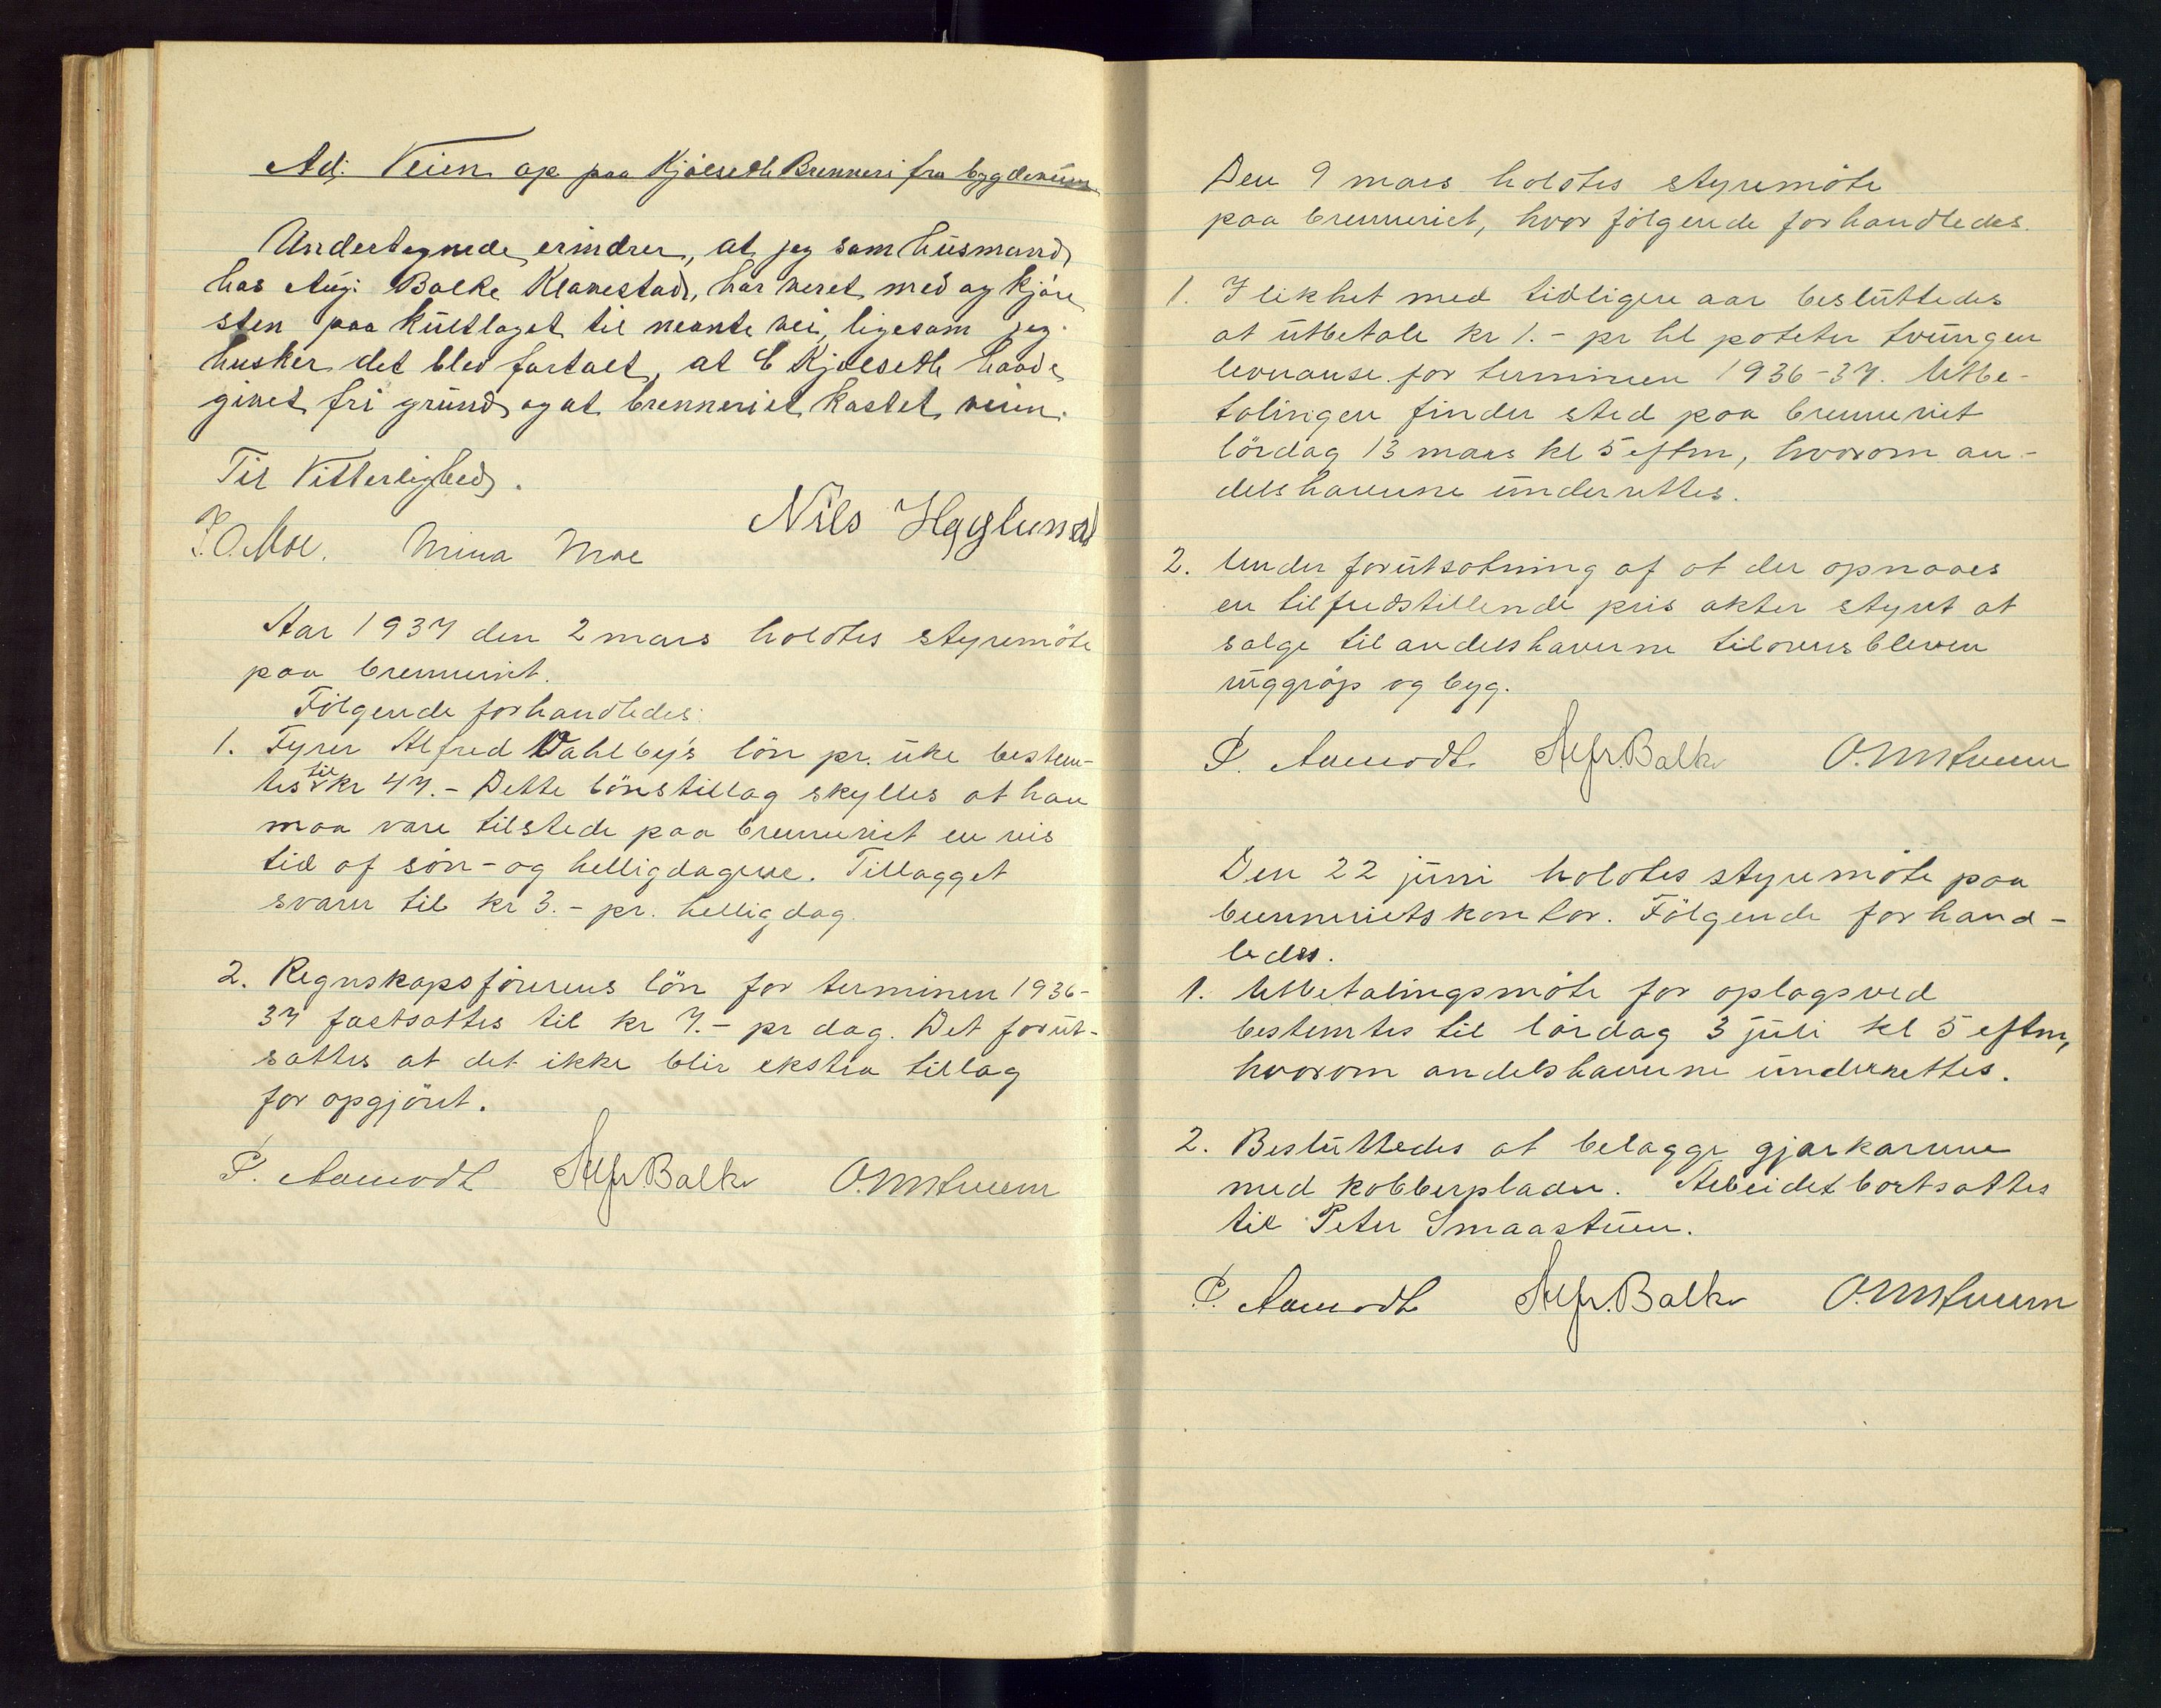 Ad: Veien op paa Kjølseth Brenneri fra bygdeveien
Undertegnede erindrer, at jeg som husmand
hos Aug: Balke Klavestad, har veret med og kjøre
sten paa kultlaget til nevnte vei, ligesom jeg
husker det blev fortalt, at C Kjølseth havde
givet fri grund og at brenneriet kostet veien.
Til Vitterlighed.
Nils Hagelund
T.O. Moe. Mina Moe
Aar 1937 den 2 mars holdtes styremöte
paa brenneriet.
Fölgende forhandledes:
1. Fyrer Alfred Vahlby's lön pr. uke bestem-
tes til kr 47.- Dette lönstillæg skylles at han
maa være tilstede paa brenneriet en vis
tid af sön- og helligdagene. Tillægget
svarer til kr 3.- pr. helligdag.
2. Regnskapsförerens lön for terminen 1936-
37 fastsattes til kr 7.- pr dag. Det forut-
sættes at det ikke blir ekstra tillæg
for opgjöret.
P. Aamodt Alfr. Balke O.
Den 9 mars holdtes styremöte
paa brenneriet, hvor fölgende forhandledes.
1. I likhet med tidligere aar besluttedes
at utbetale kr 1.- pr hl poteter tvungen
leveranse for terminen 1936-37. Utbe-
talingen finder sted paa brenneriet
lördag 13 mars kl 5 eftm, hvorom an-
delshaverne underrettes.
2. Under forutsætning af at der opnaaes
en tilfredstillende pris akter styret at
sælge til andelshaverne tiloversbleven
ruggröp og byg.
P. Aamodt Alfr. Balke O.
Den 22 juni holdtes styremöte paa
brenneriets kontor. Fölgende forhand-
ledes.
1. Utbetalingsmöte for oplagsved
bestemtes til lördag 3 juli kl 5 eftm,
hvorom andelshaverne underrettes.
2. Besluttedes at belægge gjærkarene
med kobberplader. Arbeidet bortsattes
til Peter Smaastuen.
P. Aamodt Alfr. Balke O.